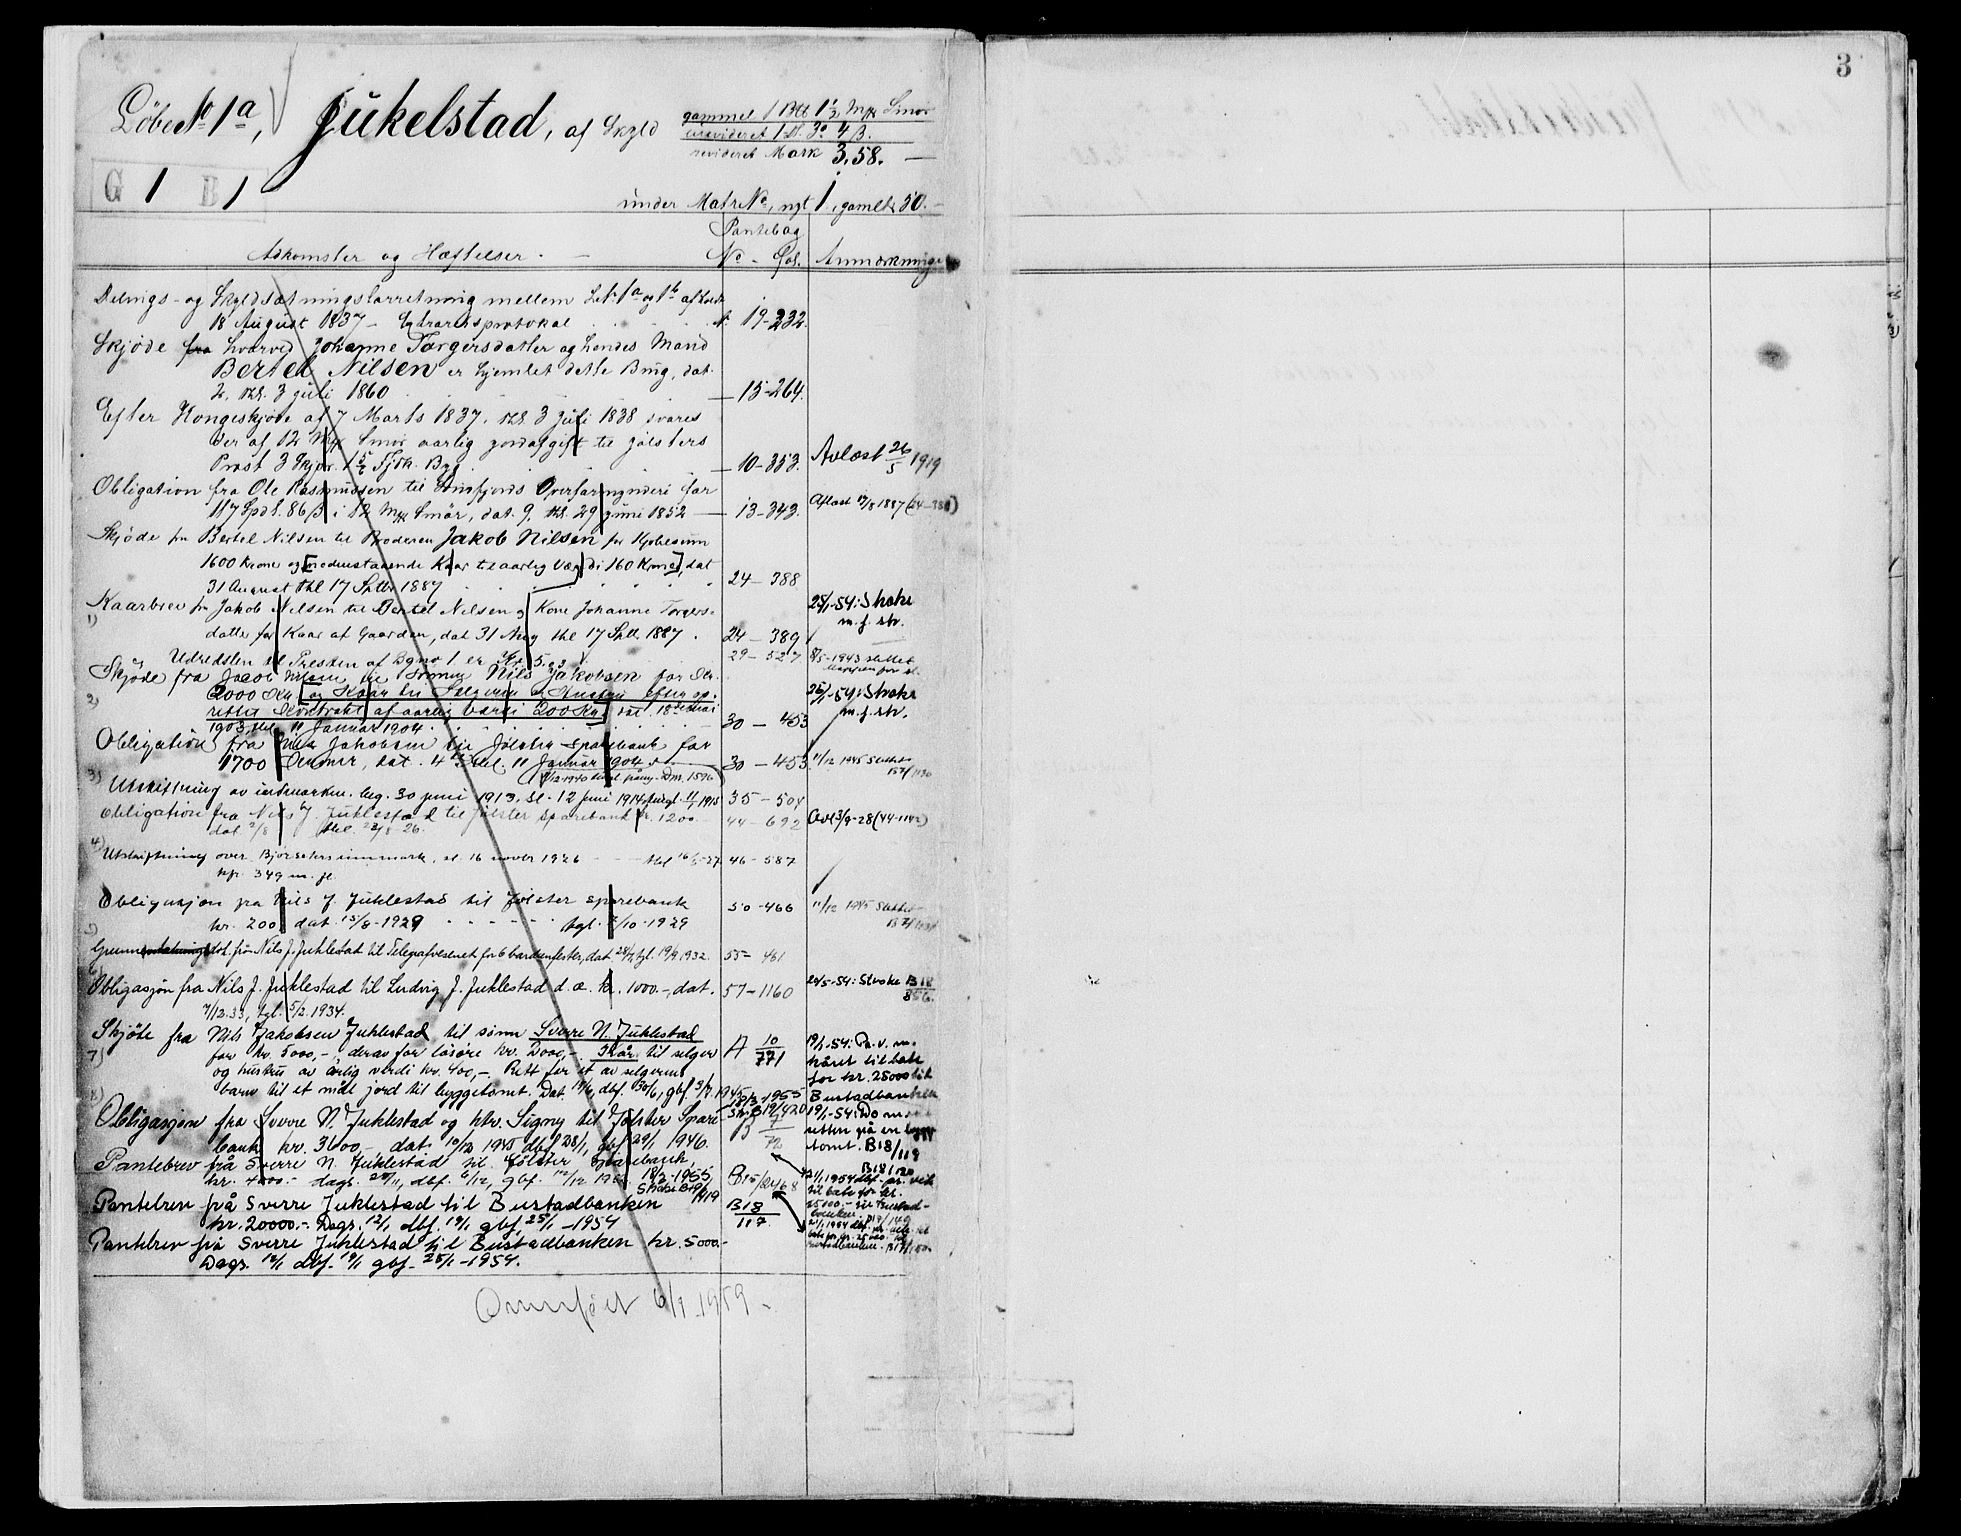 Løbe No 1a, Jukelstad, af Skyld
gammel 1 1½ Mk Smør
urevideret 1 3 4 ß.
revideret Mark 3,58. —
G 1 B 1
under Matr No, nyt 1, gamlt 30.
Pantebog
Adkomster og Hæftelser. — No - Fol. Anmærkninger
Delings- og Skyldsætningsforretning mellem LNr 1a og 1b afholdt
18 August 1837 — Extraretsprotokol 19-232.
Skjøde fra hvorved Johanne Torgersdatter og hendes Mand
Bertel Nilsen er hjemlet dette Brug, dat.
2, thl. 3 juli 1860 — 15-264.
Efter Kongeskjøde af 7 Marts 1837, thl 3 Juli 1838 svares
der af 12 Mk Smør aarlig jordafgift til Jølsters
Prest 3 Skjpr. 1 Fjrk. Byg — 10-353. Avløst 26/5 1919
Obligation fra Ole Rasmussen til Søndfjords Overformynderi for
117 Spdl. 86 ß i 12 Mk Smør, dat. 9, thl. 29 juni 1852 — 13-343. Aflæst 17/8 1887 (24-388)
Skjøde fra Bertel Nilsen til Broderen Jakob Nilsen for Kjøbesum
1600 Kroner og [nedenstaaende Kaar til aarlig Værdi 160 Kroner], dat
31 August thl 17 Septbr 1887 24-388
Kaarbrev fra Jakob Nilsen til Bertel Nilsen og Kone Johanne Torgers-
1)
datter for Kaar af Gaarden, dat 31 Aug thl 17 Septbr 1887. 24-389
25/1-54: Stroke
m. f. str.
Udredslen til Presten af Bgno 1 er 5. 29-527 8/5-1943 slettet
Skjøde fra Jacob Nilsen til Sønnen Nils Jakobsen for Kr.
2000 Kr. [og Kaar til Sælgeren og Hustru efter op-
2)
rettet Kontrakt af aarlig værdi 200 Kr.] dat. 18
1903, thl. 11 Januar 1904. 30-453
25/1-54: Stroke
m. f. str.
Obligation fra Nils Jakobsen til Jølster sparebank for
1700 Kroner, dat. 4 thl. 11 Januar 1904 30-453. 11/12 1945 Slettet
3) Utskiftning av indmarken. beg. 30 juni 1913. sl. 12 juni 1914, tingl. 11/1 1915 35-504
Obligation fra Nils J. Juklestad til Jølster Sparebank kr. 1200.— 44-692 Avl 3/9-28 (44-1142)
dat. 2/8 thl. 23/8-26.
4) Utskiftning over Bjørsetersinnmark, sl. 16 novbr 1926 thl 16/5-27 46-587
kfr. 349 m. fl.
Obligasjon fra Nils J. Juklestad til Jølster sparebank
kr. 200 dat. 15/8-1929 tgl. 2/10-1929 50-466 11/12 1945 Slettet
5)
Grunn fra Nils J. Juklestad til Telegrafvesenet for 6 bardunfester, dat. tgl. 19/9 1932. 55-461
6)
Obligasjon fra Nils J. Juklestad til Ludvig J. Juklestad d. æ. kr. 1000.—, dat. 57-1160 24/5-54: Stroke B18/856.
7/12.33, tgl. 5/2.1934.
Skjøte fra Nils Jakobsen Juklestad til sønn Sverre N. Juklestad
7)
for kr. 5000,-, derav for løsøre kr. 2000,-. Kår til selger A 10/771
og hustru av årlig verdi kr. 400,-. Rett for et av selgerens
8)
barn til et mål jord til byggetomt. Dat. 19/6, dbf. 30/6, gbf 3/7.1945
19/1-54: Pr. v. m.
kåret tilbake
for kr. 25000 til
Bustadbanken
Obligasjon fra Sverre N. Juklestad og htr. Signy til Jølster Spare-
bank kr. 3600,-, dat. 10/12 1945 dbf. 28/1, gbf 29/1 1946. B 7/72
18/3-1955
Str. B19/420
19/1-54: Do m
retten på en bygge-
tomt. B18/119
Pantebrev frå Sverre N. Juklestad til Jølster sparebank,
kr. 4000.- dagf. dbf. 6/12, gbf. 12/12 B15/2468
18/3-1955
Stroke B19/419
B18/120
21/1 1954 dbf. pr. vik
tilbake for kr.
25000.- til Bustad-
banken. B18/149
Pantebrev på Sverre Juklestad til Bustadbanken B18/117.
kr. 20000.- Dagf. 12/1 dbf. 19/1 gbf 25/1-1954
Pantebrev frå Sverre Juklestad til Bustadbanken kr. 5000.-
Dagf. 12/1 dbf. 19/1 gbf. 25/1-1954.
Omført 6/1 1959.
3